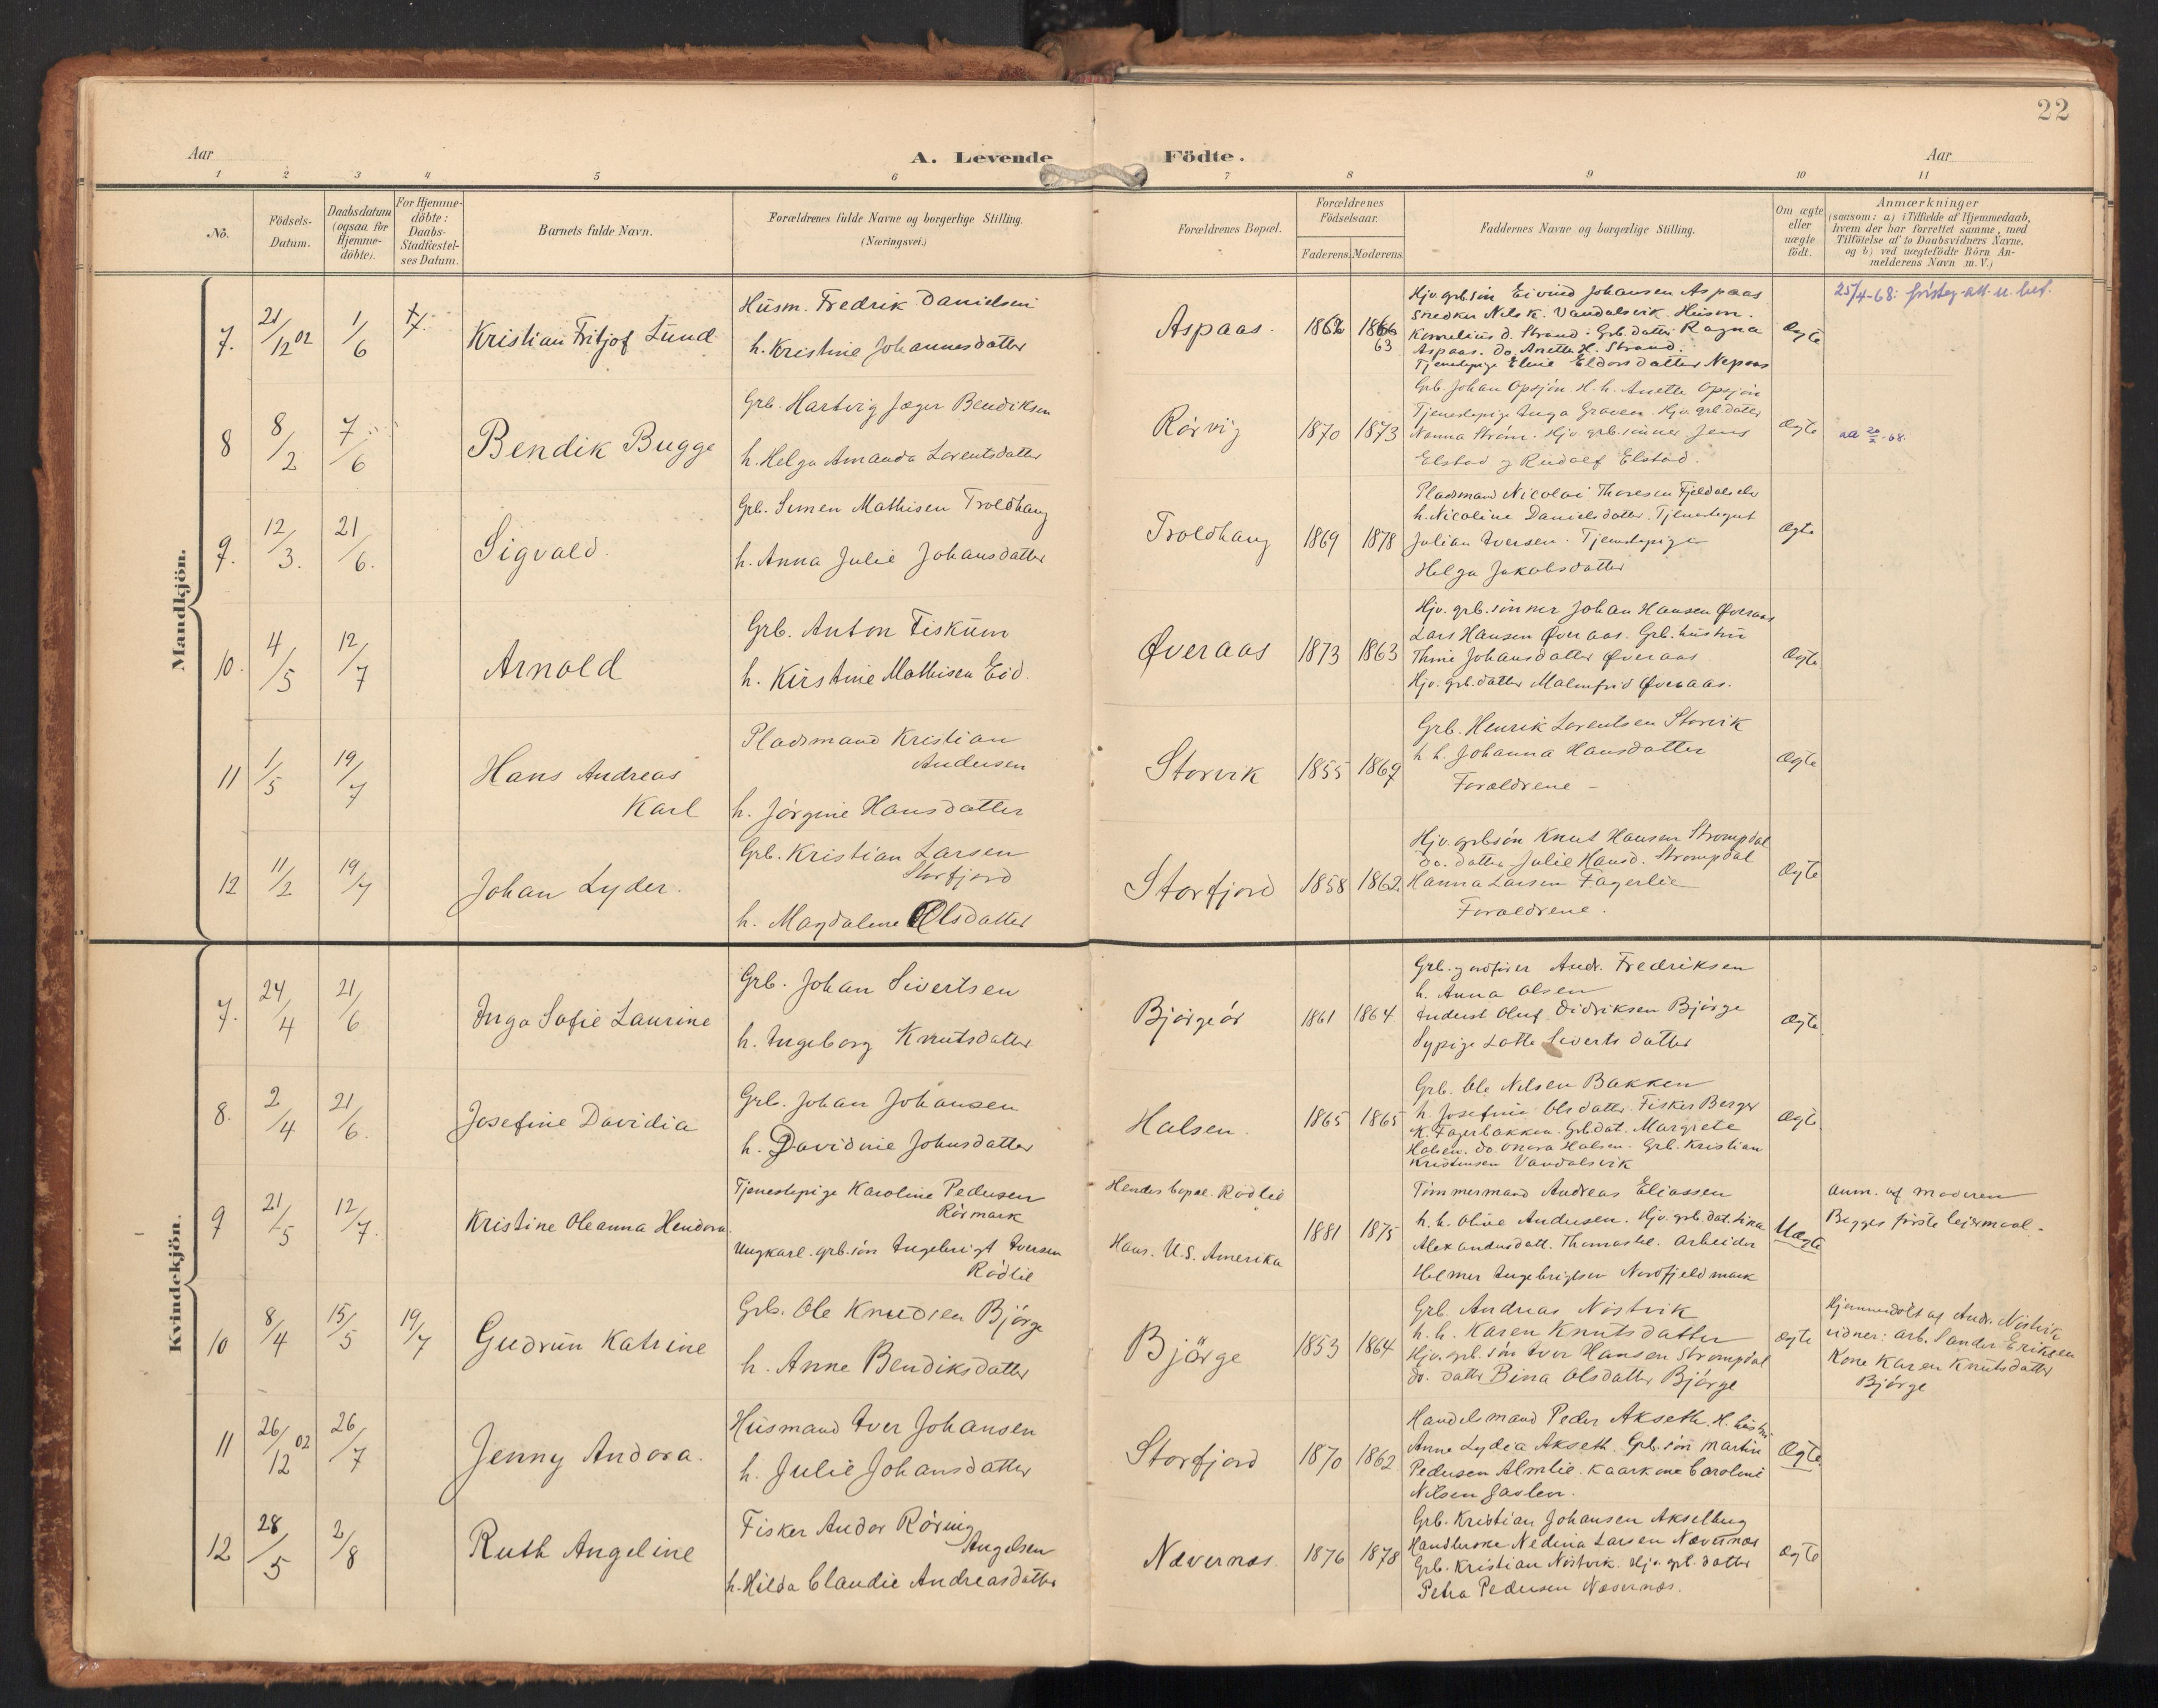 22
Aar
A. Levende Födte.
Aar
1 2 3 4 5 6 7 8 9 10 11
Nö.
Födsels-Datum.
Daabsdatum (ogsaa for Hjemme-döbte).
For Hjemme-döbte: Daabs-Stadfæstel-ses Datum.
Barnets fulde Navn.
Forældrenes fulde Navne og borgerlige Stilling.
(Næringsvei.)
Forældrenes Bopæl.
Forældrenes Födselsaar.
Faderens. Moderens.
Faddernes Navne og borgerlige Stilling.
Om ægte eller uægte födt.
Anmærkninger
(saasom: a) i Tilfælde af Hjemmedaab, hvem der har forrettet samme, med Tilföielse af to Daabsvidners Navne, og b) ved uægtefödte Börn An-melderens Navn m. V.)
Mandkjön.
7. 21/12 02 1/6
Kristian Fritjof Lund
Husm. Fredrik Danielsen
h. Kristine Johannesdatter
Aspaas. 1862 1866 63
Hjv. grb. sön Eivind Johansen Aspaas
Snedker Nils K. Vandalsvik. Husm.
Kornelius d. Strand. Grb. datter Ragna
Aspaas. do. Anette H. Strand.
Tjenestepige Eldorsdatter Nepaas
Ægte
25/4-68:
8 8/2 7/6
Bendik Bugge
Grb. Hartvig Jæger Bendiksen
h. Helga Amanda Lorentsdatter
Rörvig 1870 1873
Grb. Johan Opsjön H. h. Anette Opsjön
Tjenestepige Inga Graven. Hjv. grb. datter
Nanna Ström. Hjv. grb. sönner Jens
Elstad og Rudolf Elstad.
Ægte
9. 12/3. 21/6.
Sigvald.
Grb. Simen Mathisen Troldhaug
h. Anna Julie Johansdatter
Troldhaug 1869 1878
Pladsmand Nicolai Thoresen
h. Nicoline Danielsdatter. Tjenestegut
Julian Iversen. Tjenestepige
Helga Jakobsdatter
Ægte
10. 4/5 12/7
Arnold
Grb. Anton Fiskum
h. Kirstine Mathisen Eid.
Øveraas 1873 1863
Hjv. grb. sönner Johan Hansen Øveraas
Lars Hansen Øveraas. Grb. hustru
Thine Johansdatter Øveraas
Hjv. grb. datter Malmfrid Øveraas.
Ægte
11 1/5 19/7
Hans Andreas
Karl
Pladsmand Kristian
Andersen
h. Jörgine Hansdatter
Storvik 1855 1867
Grb. Henrik Lorentsen Storvik
h. h. Johanna Hansdatter
Forældrene -
Ægte
12 11/2 19/7
Johan Lyder.
Grb. Kristian Larsen
Storfjord
h. Magdalene Olsdatter
Storfjord 1858 1862.
Hjv. grb sön Knut Hansen Strompdal
do. datter Julie Hansd. Strompdal
Hanna Larsen Fagerlie
Forældrene.
Ægte
Kvindekjön.
7. 24/4 21/6
Inga Sofie Laurine
Grb. Johan Sivertsen
h. Ingeborg Knutsdatter
Björgeör 1861 1864
Grb. Andr. Fredriksen
h. Anna Olsen
Inderst Oluf Didriksen Björge
Sypige Lotte Sivertsdatter
Ægte
8. 2/4 21/6.
Josefine Davidia
Grb. Johan Johansen
h. Davidnie Johnsdatter
Halsen. 1865 1865
Grb. Ole Nilsen Bakken
h. Josefine Olsdatter. Fisker Berger
K. Fagerbakken. Grb. dat. Margrete
Halsen. do. Halsen. Grb. Kristian
Kristensen Vandalsvik
Ægte
9 21/5 12/7.
Kristine Oleanna Hendora.
Tjenestepige Karoline Pedersen
Rörmark
Ungkarl. grb. sön Ingebrigt Iversen
Rödlie
Hendes bopæl. Rödlie
Hans. U.S. Amerika
1881 1875
Tömmermand Andreas Eliassen
h. h. Olive Andersen. Hjv. grb. dat. Lina
Alexandersdatt. Thomaslie. Arbeider
Helmer Ingebrigtsen Nordfjeldmark
Uægte
Anm. af moderen
Begges förste leiermaal.
10 8/4 15/5 19/7
Gudrun Katrine
Grb. Ole Knudsen Björge
h. Anne Bendiksdatter
Björge 1853 1864
Grb. Andreas Nöstvik
h. h. Karen Knutsdatter
Hjv. grb. sön Iver Hansen Strompdal
do. datter Bina Olsdatter Björge
Ægte
Hjemmedöbt af Andr. Nöstvik
vidner: arb. Sander Eriksen
Kone Karen Knutsdatter
Björge
11 26/12 02 26/7
Jenny Andora.
Husmand Iver Johansen
h. Julie Johansdatter
Storfjord 1870 1862
Handelsmand Peder Akseth. H. hustru
Anne Lydia Akseth. Grb. sön Martin
Pedersen Almlie. Kaarkone Caroline
Nilsen
Ægte
12 28/5 2/8
Ruth Angeline
Fisker Andor Röring
Angelsen
h. Hilda Claudie Andreasdatter
Nævernæs. 1876 1878
Grb. Kristian Johansen Akselberg
Nedina Larsen Nævernæs
Grb. Kristian Nöstvik. Hjv. grb. datter
Petra Pedersen Nævernæs.
Ægte